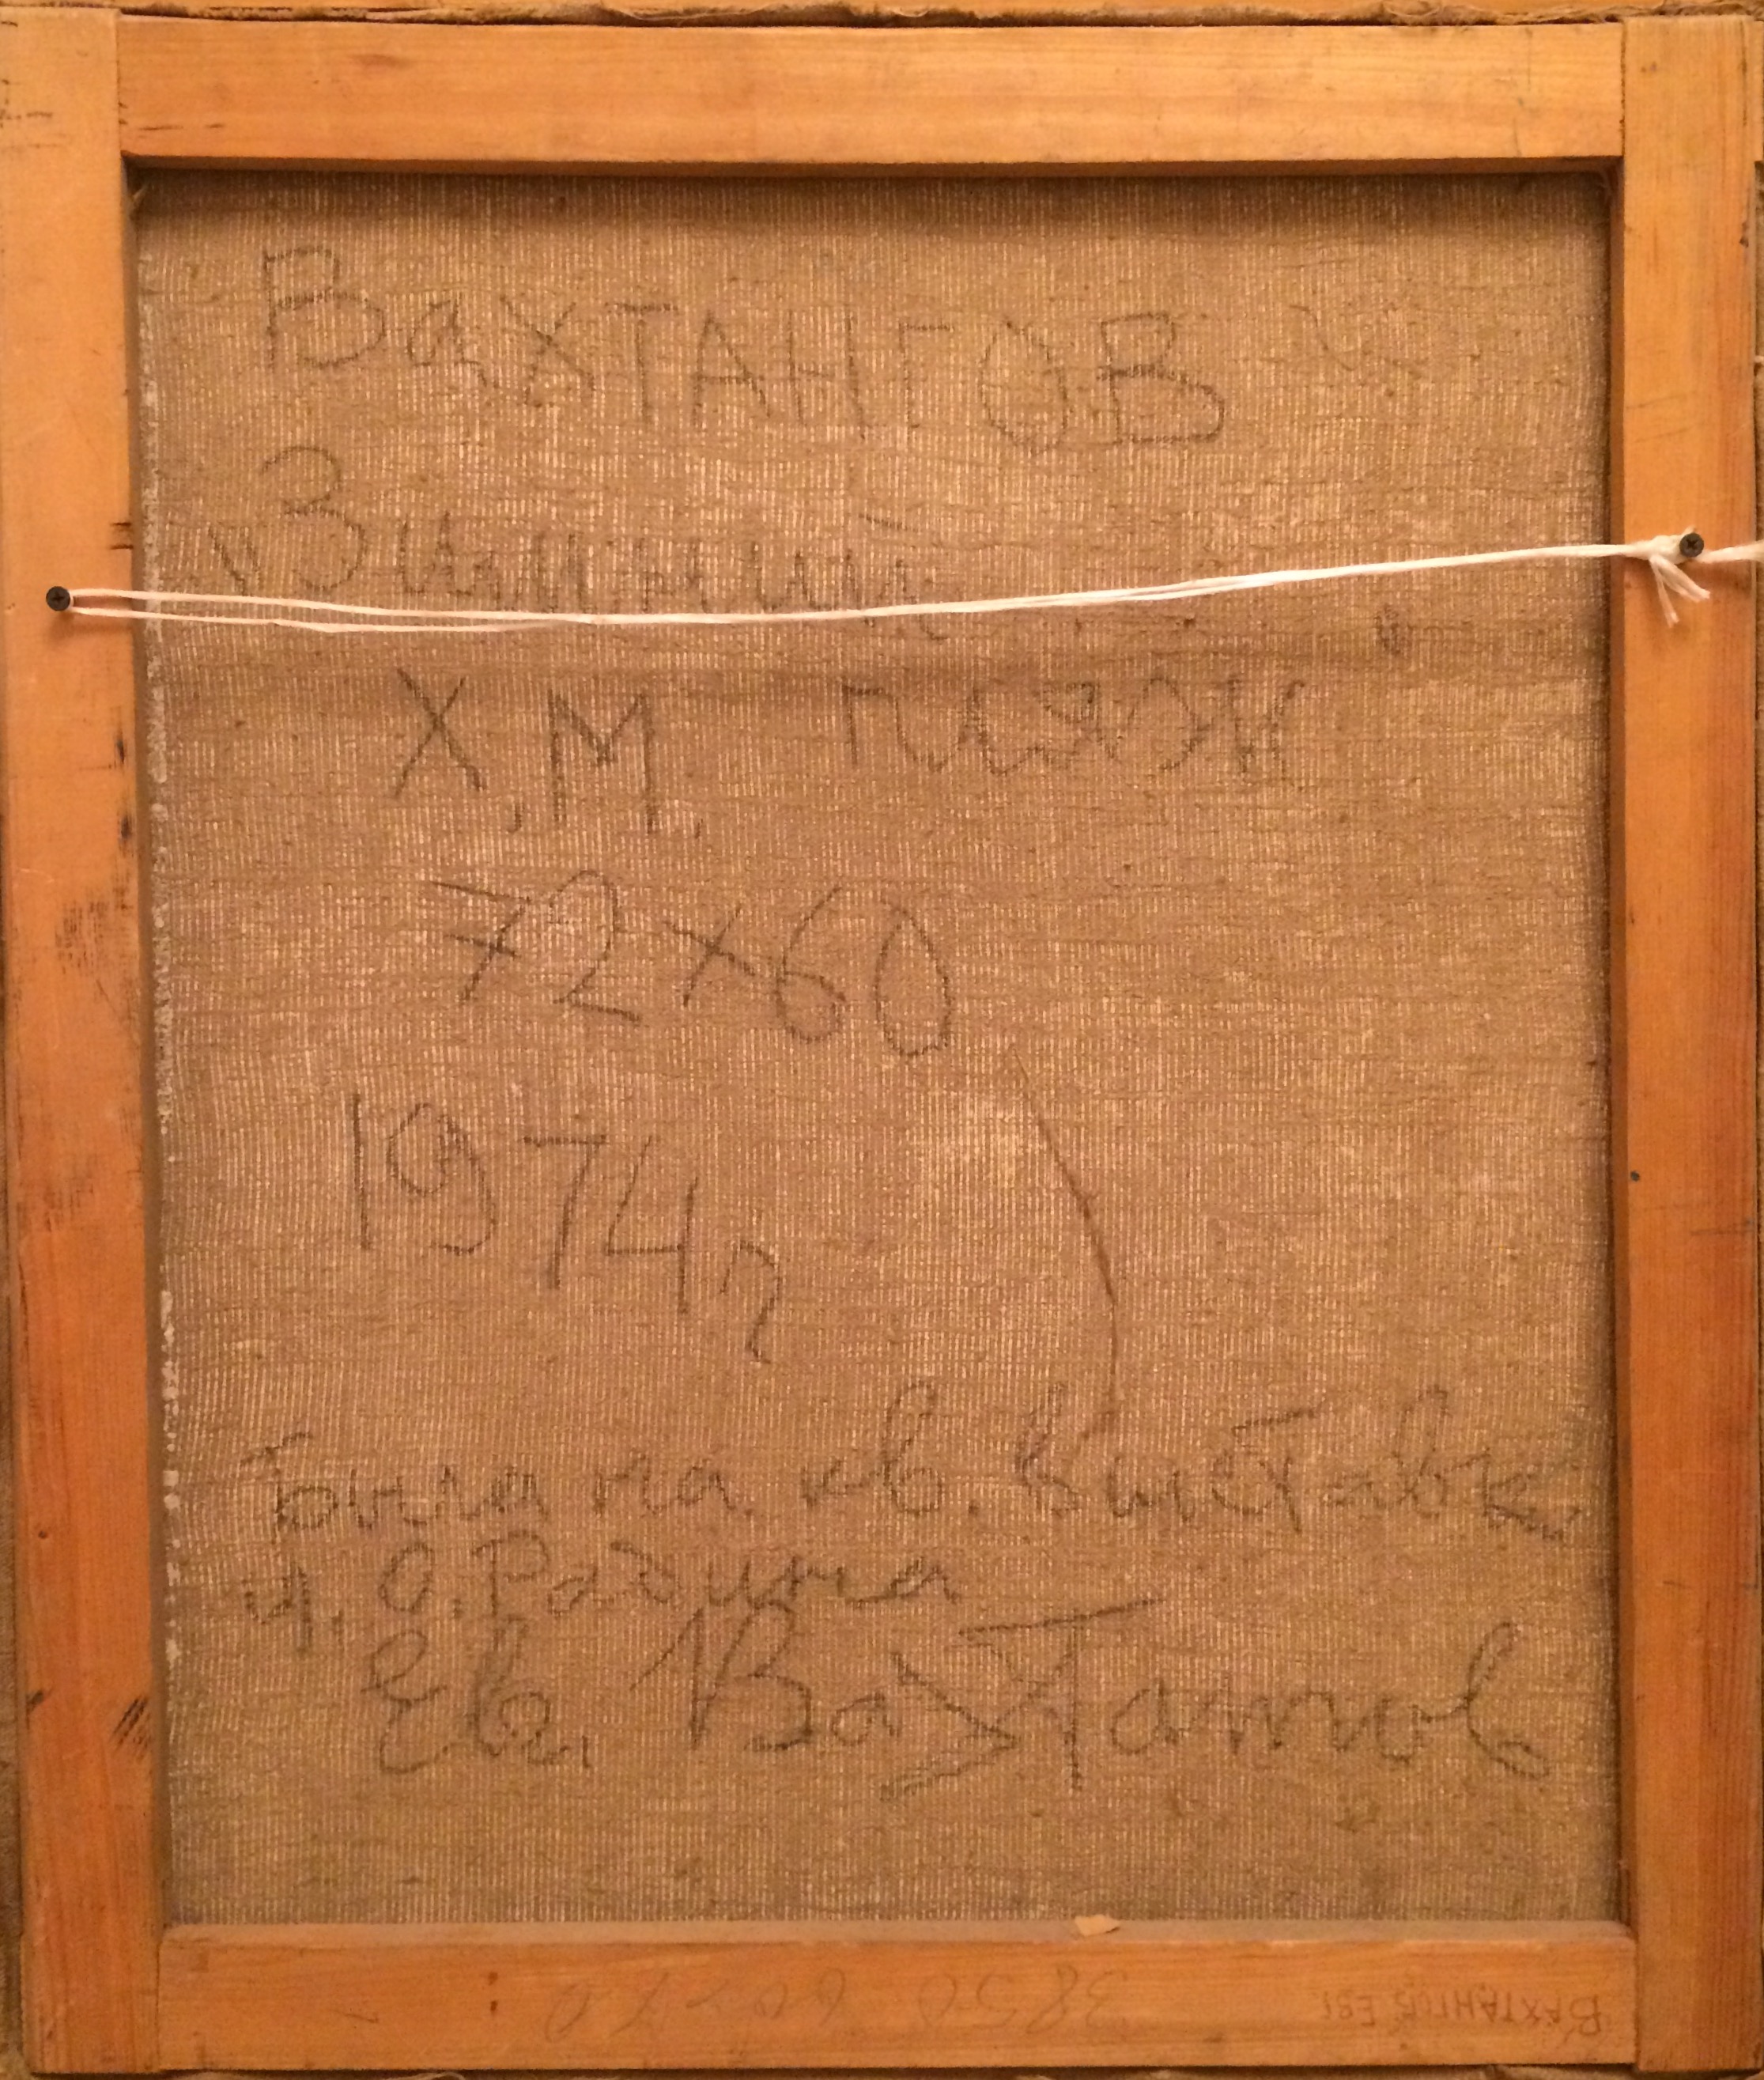 ВахТАНГОВ
"Зимний
пляж"
Х.М.
72×60
1974г
Была на кв. выставке
у О. Рабина
Ев. Вахтангов
ВАХТАНГОВ ЕВГ
3850 60×70